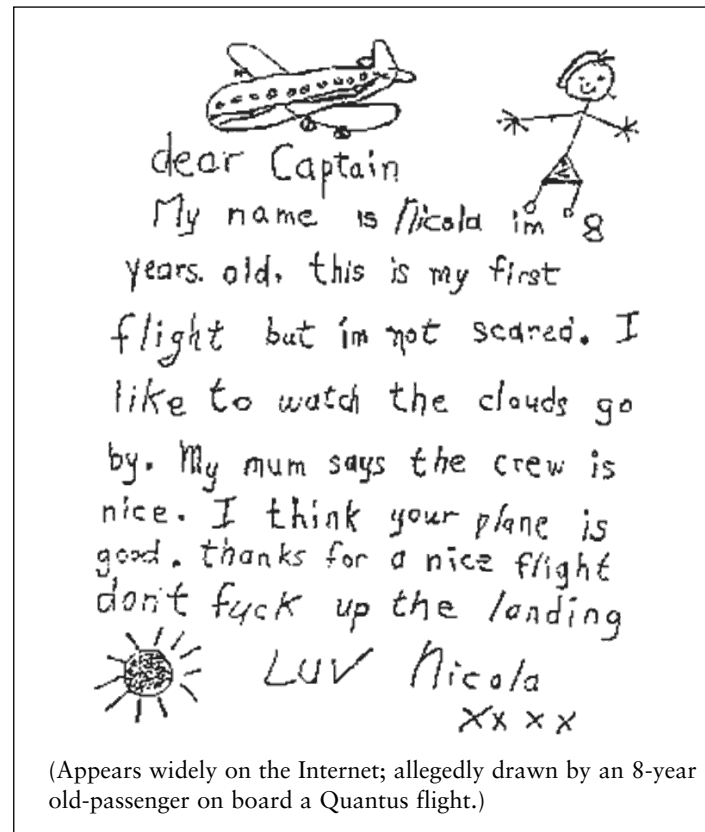 dear Captain
My name is Nicola im 8
years. old, this is my first
flight but im not scared. I
like to watch the clouds go
by. My mum says the crew is
nice. I think your plane is
good. thanks for a nice flight
don't fuck up the landing
LUV Nicola
XXXX
(Appears widely on the Internet; allegedly drawn by an 8-year
old-passenger on board a Quantus flight.)